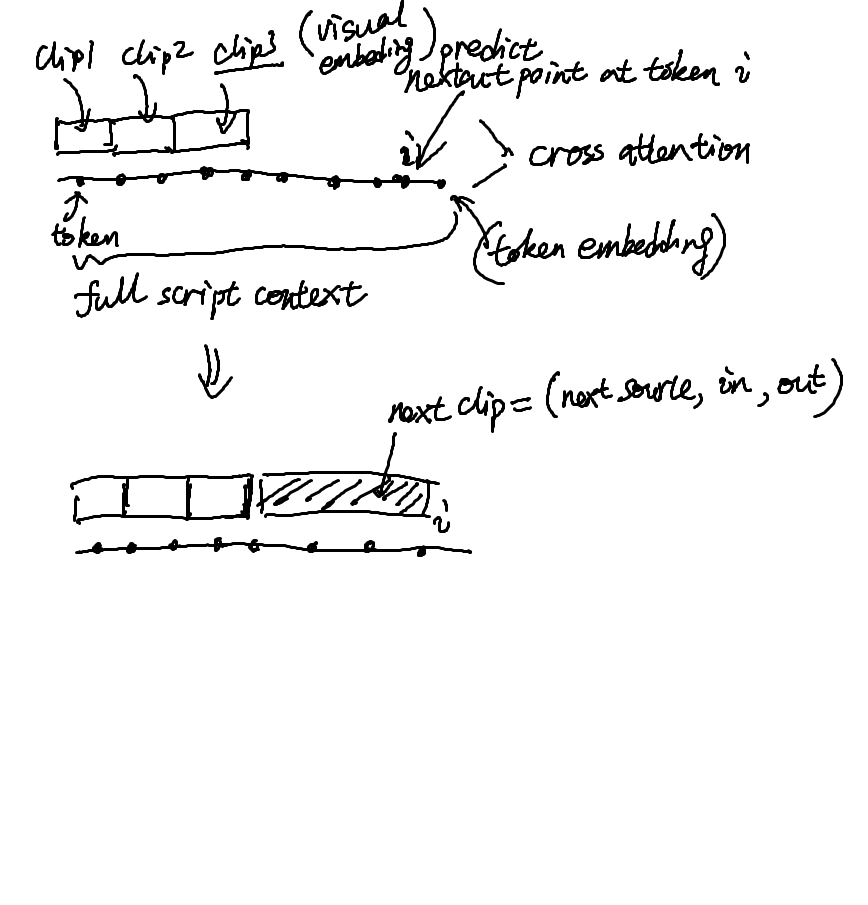 clip1 clip2 clip3 (visual embeding) predict
next cut point at token i
i
cross attention
token
(token embedding)
full script context
next clip = (next source, in, out)
i